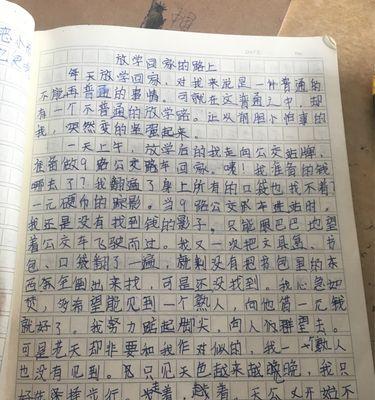 放学回家的路上
每天放学回家，对我来说是一件普通的
不能再普通的事情。可就在这普通之中，却
有一个不普通的放学路。让从前胆小怕事的
我，突然变的坚强起来。
一天上午，放学后的我走向公交站牌，
准备做9路公交路车回家。噢！我准备的钱
哪去了？我翻遍了身上所有的口袋也找不着
一元硬币的踪影。当9路公交车进站时，
我还是没有找到钱的影子。只能眼巴巴地望
着公交车飞驶而过。我又一次把文具盒、书
包、口袋翻了一遍，就剩没有把书包里的东
西倒出来找，可是还没找到。我心急如
焚，多希望能见到一个熟人，向他借一元钱
就好了。我努力踮起脚尖，向人群望去。
可是老天却非要和我作对似的，我一个熟人
也没有见到。只见天色越来越晚，我只
好选择步行。走着，走着，天公又开始不